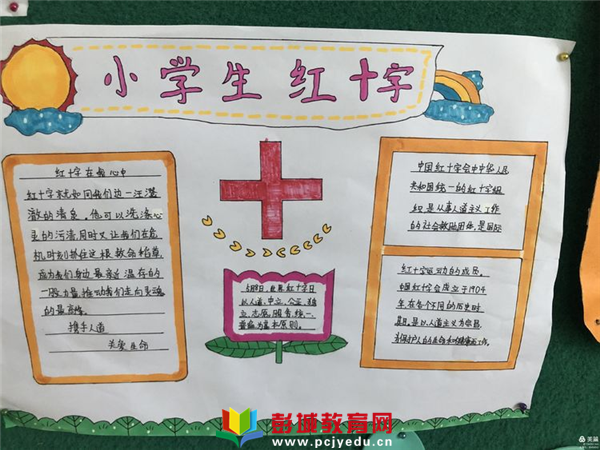 小学生红十字
红十字在我心中
红十字就如同我们身边一汪清
澈的清泉，他可以洗涤心
灵的污渍，同时又让我们在危
机时刻抓住这根救命稻草，
成为我们身边最亲近温存的
一股力量，推动我们走向灵魂
的最高峰。
携手人道
关爱生命
5月8日，世界红十字日
以人道、中立、公正、独
立、志愿、服务、统一、
普遍为基本原则。
中国红十字会中中华人民
共和国统一的红十字组
织是从事人道主义工作
的社会救助团体，是国际
红十字运动的成员。
中国红十字会成立于1904
年，在各个不同的历史时
期，是以人道主义为宗旨，
为保护人的生命和健康而工作。
彭城教育网
www.pcjyedu.cn
美篇